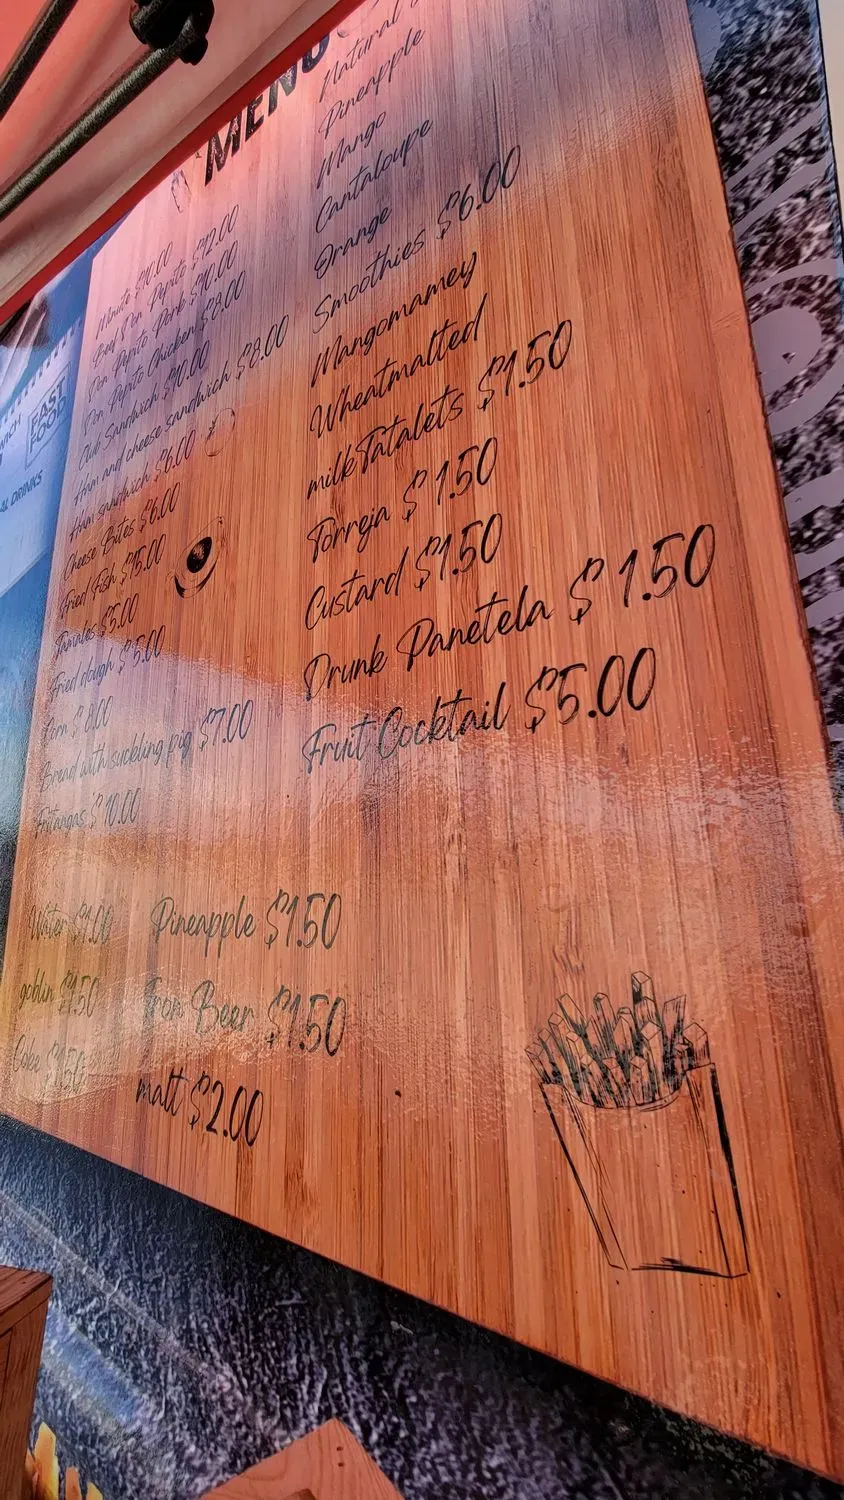 MENU
Maito $10.00
Beef Don Pepito $12.00
Don Pepito Pork $10.00
Don Pepito Chicken $8.00
Club Sandwich $10.00
Ham and cheese sandwich $8.00
Ham sandwich $6.00
Cheese Bites $6.00
Fried Fish $15.00
Tamales $5.00
Fried dough $5.00
Corn $8.00
Bread with suckling pig $7.00
Fritangas $10.00
Natural
Pineapple
Mango
Cantaloupe
Orange
Smoothies $6.00
Mangomamey
Wheatmalted
milkTatalets $1.50
Torreja $1.50
Custard $1.50
Drunk Panetela $1.50
Fruit Cocktail $5.00
Water $1.00
goblin $1.50
Coke $1.50
Pineapple $1.50
Iron Beer $1.50
malt $2.00
FAST
FOOD
DRINKS